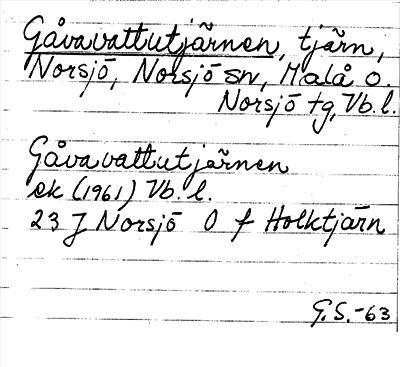 Gåvavattutjärnen, tjärn,
Norsjö, Norsjö sn, Malå o.
Norsjö tg, Vb.l.
Gåvavattutjärnen
ek (1961) Vb.l.
23 J Norsjö O f Holktjärn
G.S.-63